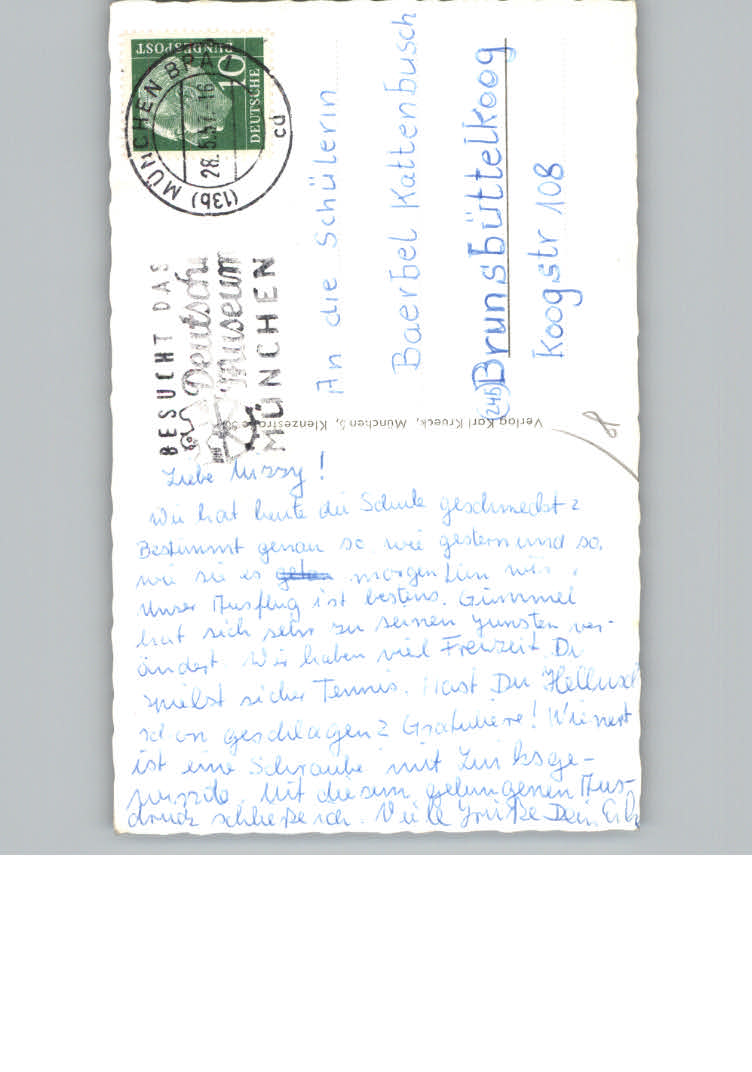 DEUTSCHE
BUNDESPOST
10
(13b) MÜNCHEN BPA
28.5.57
cd
BESUCHT DAS
Deutsche
Museum
MÜNCHEN
An die Schülerin
Baerbel Kattenbusch
(24b) Brunsbüttelkoog
Koogstr 108
Verlag Karl Krueck, München 5, Klenzestraße
8
Liebe Mizzy!
Wie hat heute die Schule geschmeckt?
Bestimmt genau so wie gestern und so,
wie sie es morgen tun wird.
Unser Ausflug ist bestens. Gümmel
hat sich sehr zu seinen Gunsten ver-
ändert. Wir haben viel Freizeit. Du
spielst sicher Tennis. Hast Du
schon geschlagen? Gratuliere!
ist eine Schraube mit Linksge-
winde. Mit diesem gelungenen Aus-
druck schließe ich. Viele Grüße Dein